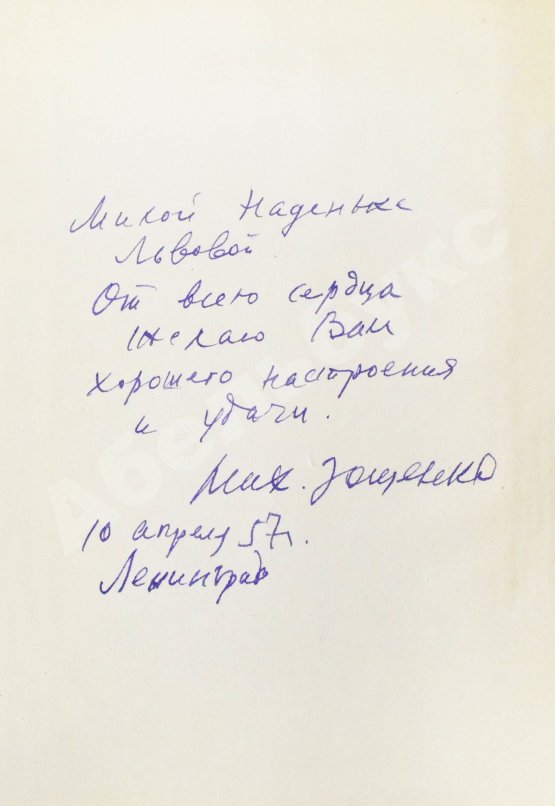 Милой Наденьке
Львовой
От всего сердца
Желаю Вам
хорошего настроения
и удачи.
Мих. Зощенко
10 апреля 57 г.
Ленинград
Абельбукс